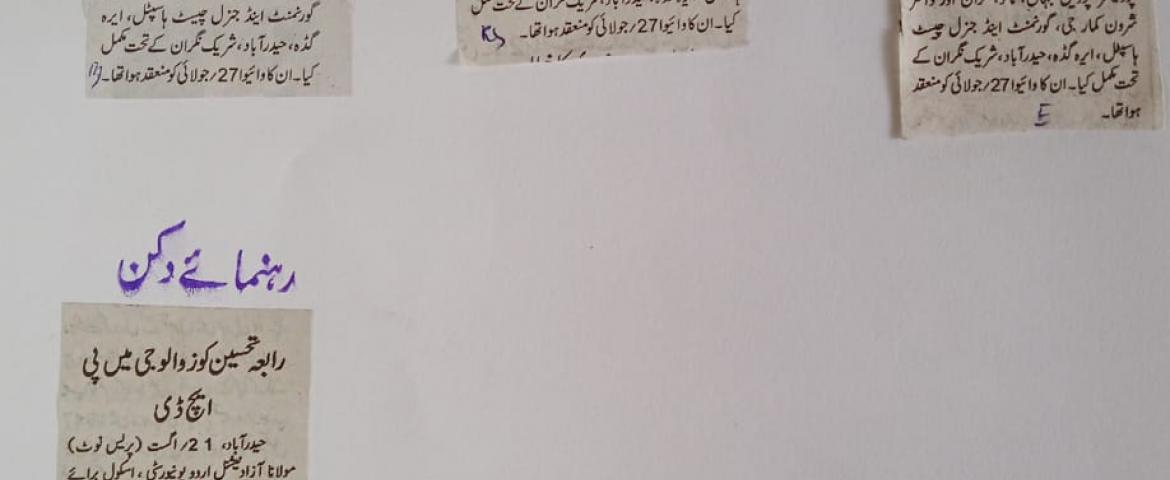 گورنمنٹ اینڈ جنرل چیسٹ ہاسپٹل، ایرہ
گڈہ، حیدرآباد، شریک نگران کے تحت مکمل
کیا۔ ان کا وائیوا 27؍جولائی کو منعقد ہوا تھا۔
کیا۔ ان کا وائیوا 27؍جولائی کو منعقد ہوا تھا۔
شرون کمار جی، گورنمنٹ اینڈ جنرل چیسٹ
ہاسپٹل، ایرہ گڈہ، حیدرآباد، شریک نگران کے
تحت مکمل کیا۔ ان کا وائیوا 27؍جولائی کو منعقد
ہوا تھا۔
E
رہنمائے دکن
رابعہ تحسین کو زوالوجی میں پی
ایچ ڈی
حیدرآباد، 21؍اگست (پریس نوٹ)
مولانا آزاد نیشنل اردو یونیورسٹی، اسکول برائے